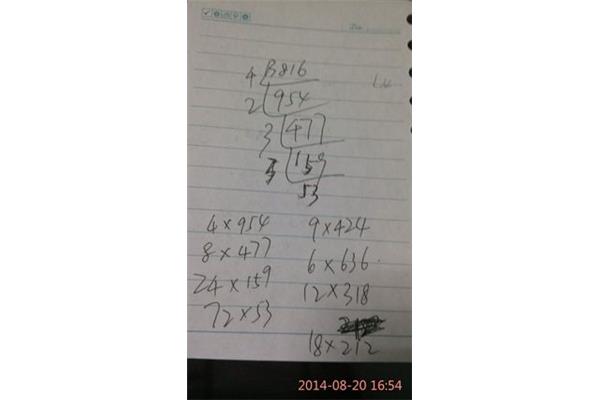 4 3816
2 954
3 477
3 159
53
4×954 9×424
8×477 6×636
24×159 12×318
72×53
18×212
2014-08-20 16:54